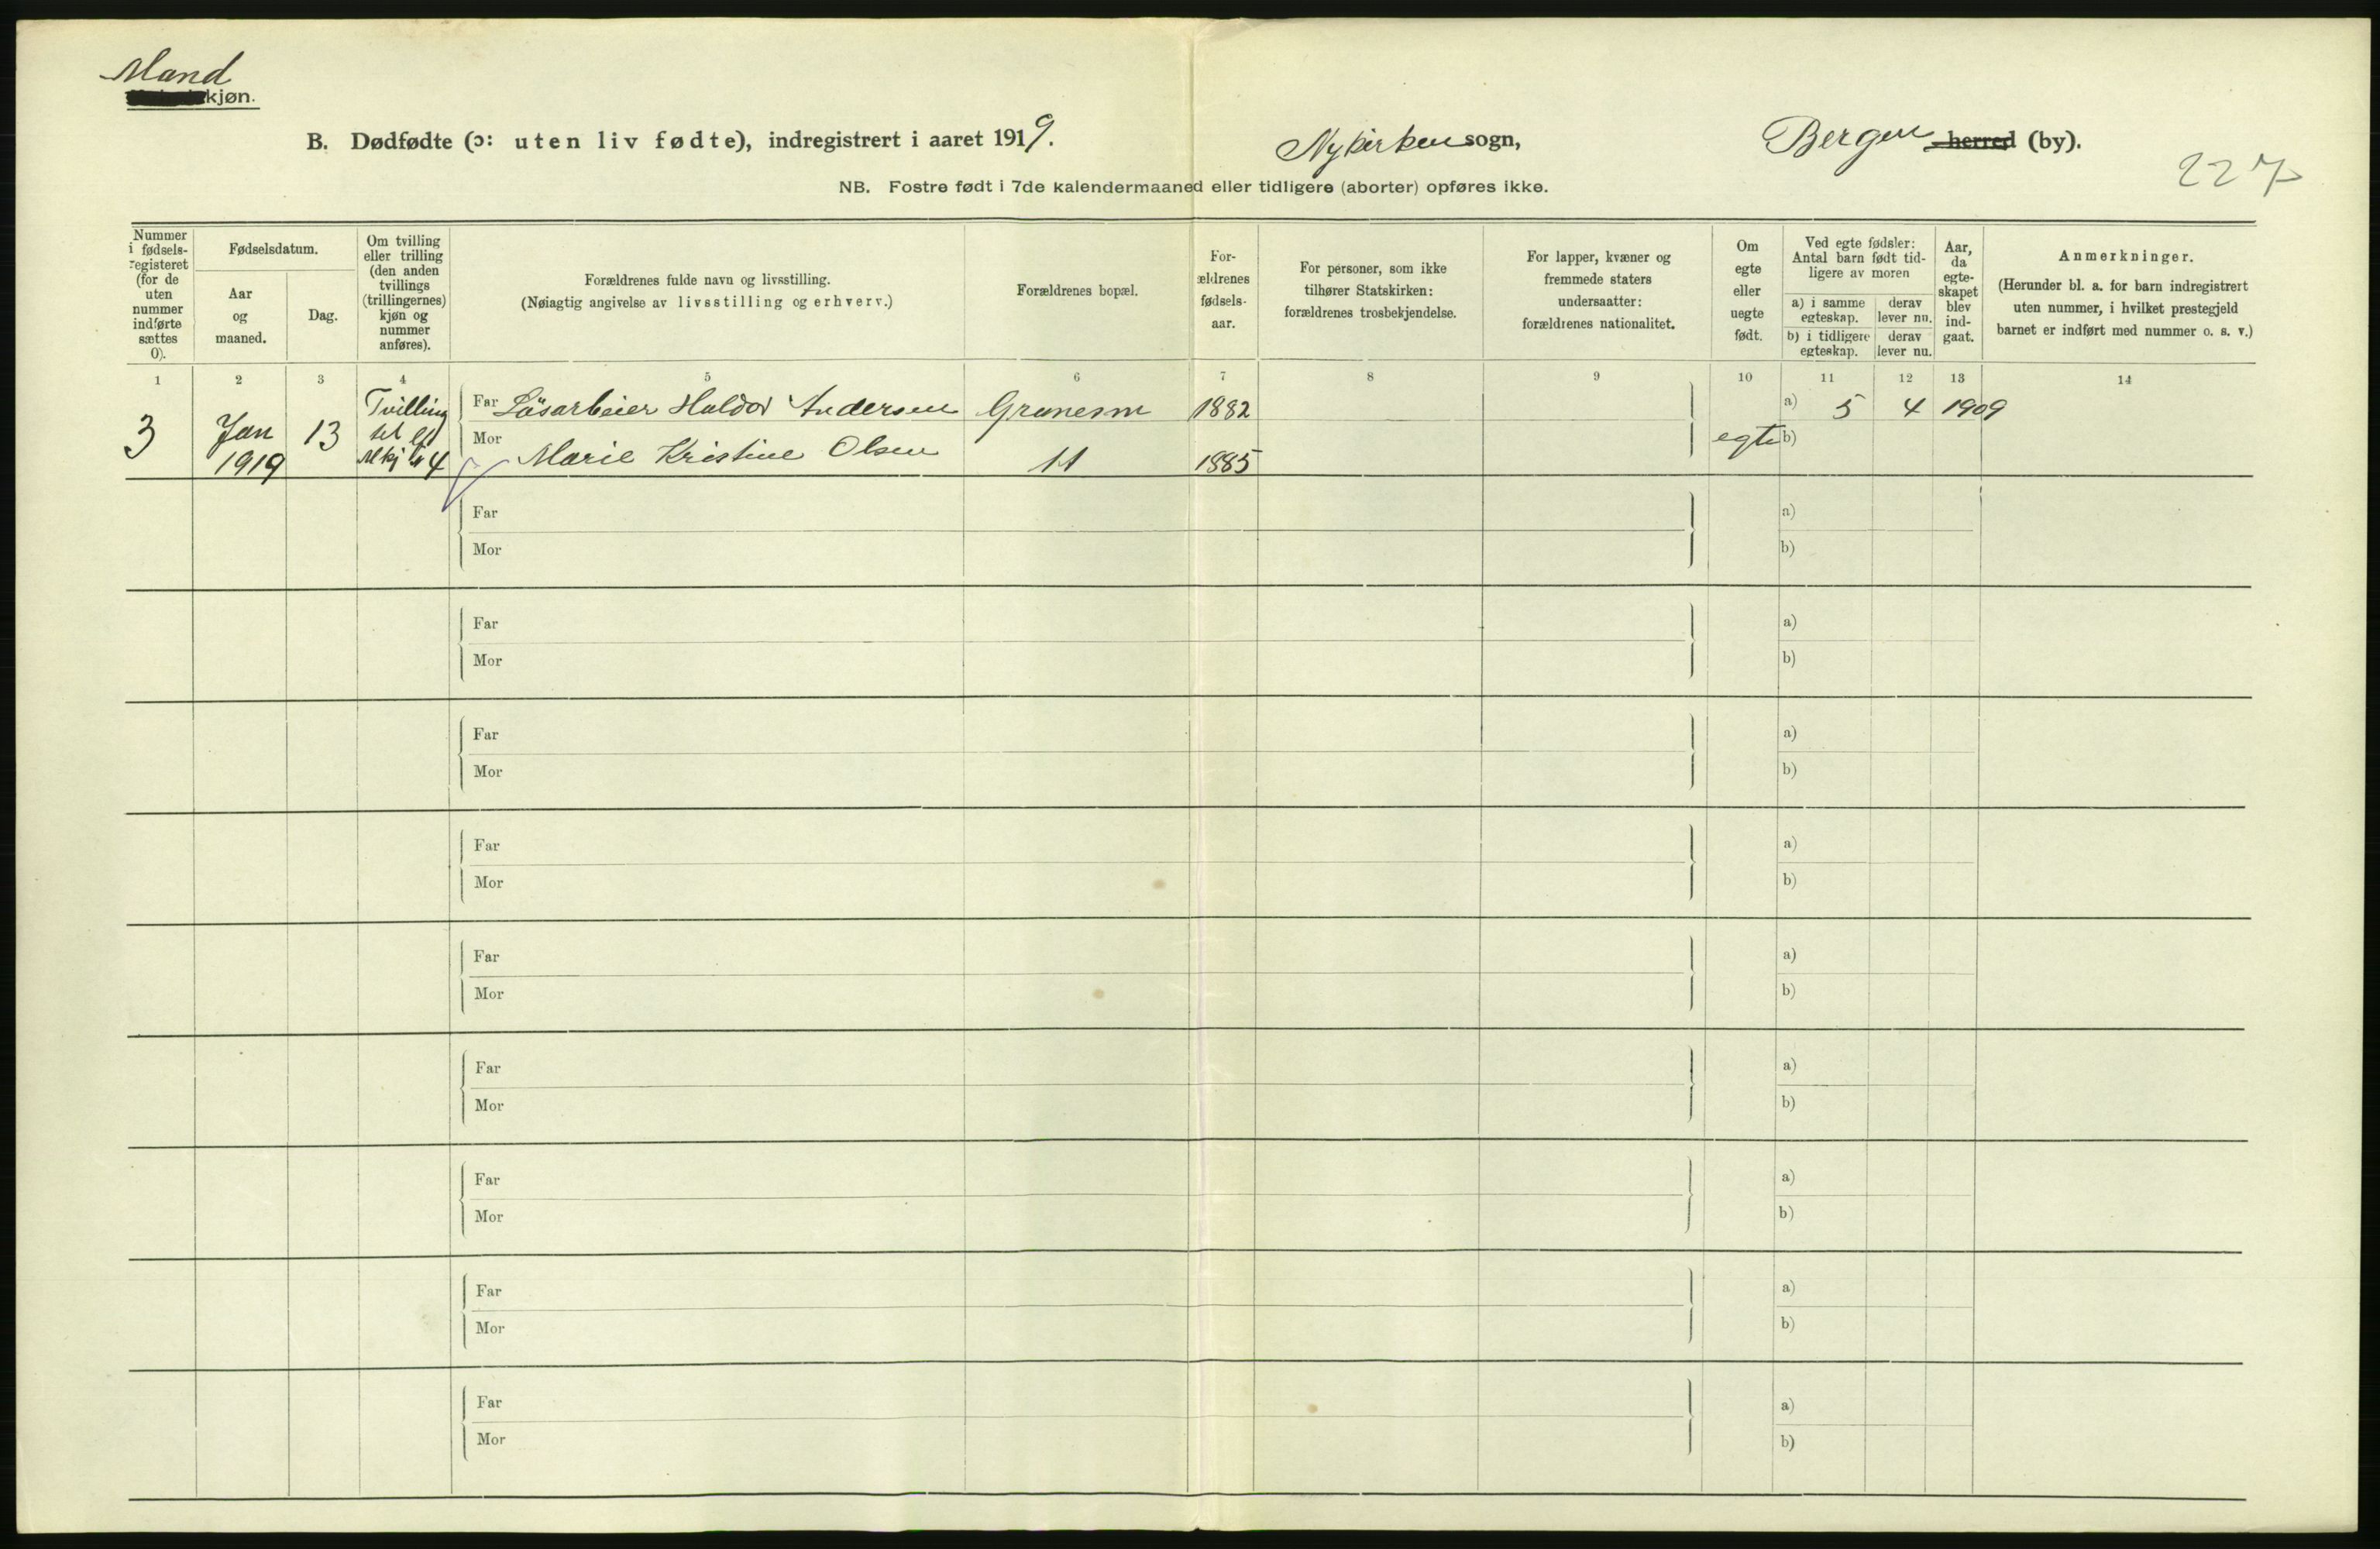 Mand
kjøn.
B. Dødfødte (ɔ: uten liv fødte), indregistrert i aaret 1919. Nykirken sogn, Bergen herred (by).
227
NB. Fostre født i 7de kalendermaaned eller tidligere (aborter) opføres ikke.
Nummer i fødsels-registeret (for de uten nummer indførte sættes 0).
Fødselsdatum.
Aar og maaned.
Dag.
Om tvilling eller trilling (den anden tvillings (trillingernes) kjøn og nummer anføres).
Forældrenes fulde navn og livsstilling.
(Nøiagtig angivelse av livsstilling og erhverv.)
Forældrenes bopæl.
For-ældrenes fødsels-aar.
For personer, som ikke tilhører Statskirken: forældrenes trosbekjendelse.
For lapper, kvæner og fremmede staters undersaatter: forældrenes nationalitet.
Om egte eller uegte født.
Ved egte fødsler: Antal barn født tid-ligere av moren
a) i samme egteskap.
derav lever nu.
b) i tidligere egteskap.
derav lever nu.
Aar, da egte-skapet blev ind-gaat.
Anmerkninger.
(Herunder bl. a. for barn indregistrert uten nummer, i hvilket prestegjeld barnet er indført med nummer o. s. v.)
1 2 3 4 5 6 7 8 9 10 11 12 13 14
3 Jan 1919 13 Tvilling
Far Løsarbeier Haldor Andersen 1882 a) 5 4 1909
Mor Marie Kristine Olsen 11 1885 egte b)
Far a)
Mor b)
Far a)
Mor b)
Far a)
Mor b)
Far a)
Mor b)
Far a)
Mor b)
Far a)
Mor b)
Far a)
Mor b)
Far a)
Mor b)
Far a)
Mor b)